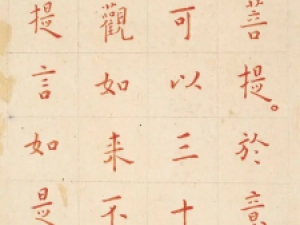 菩提。於意
可以三十
觀如来不
提言如是